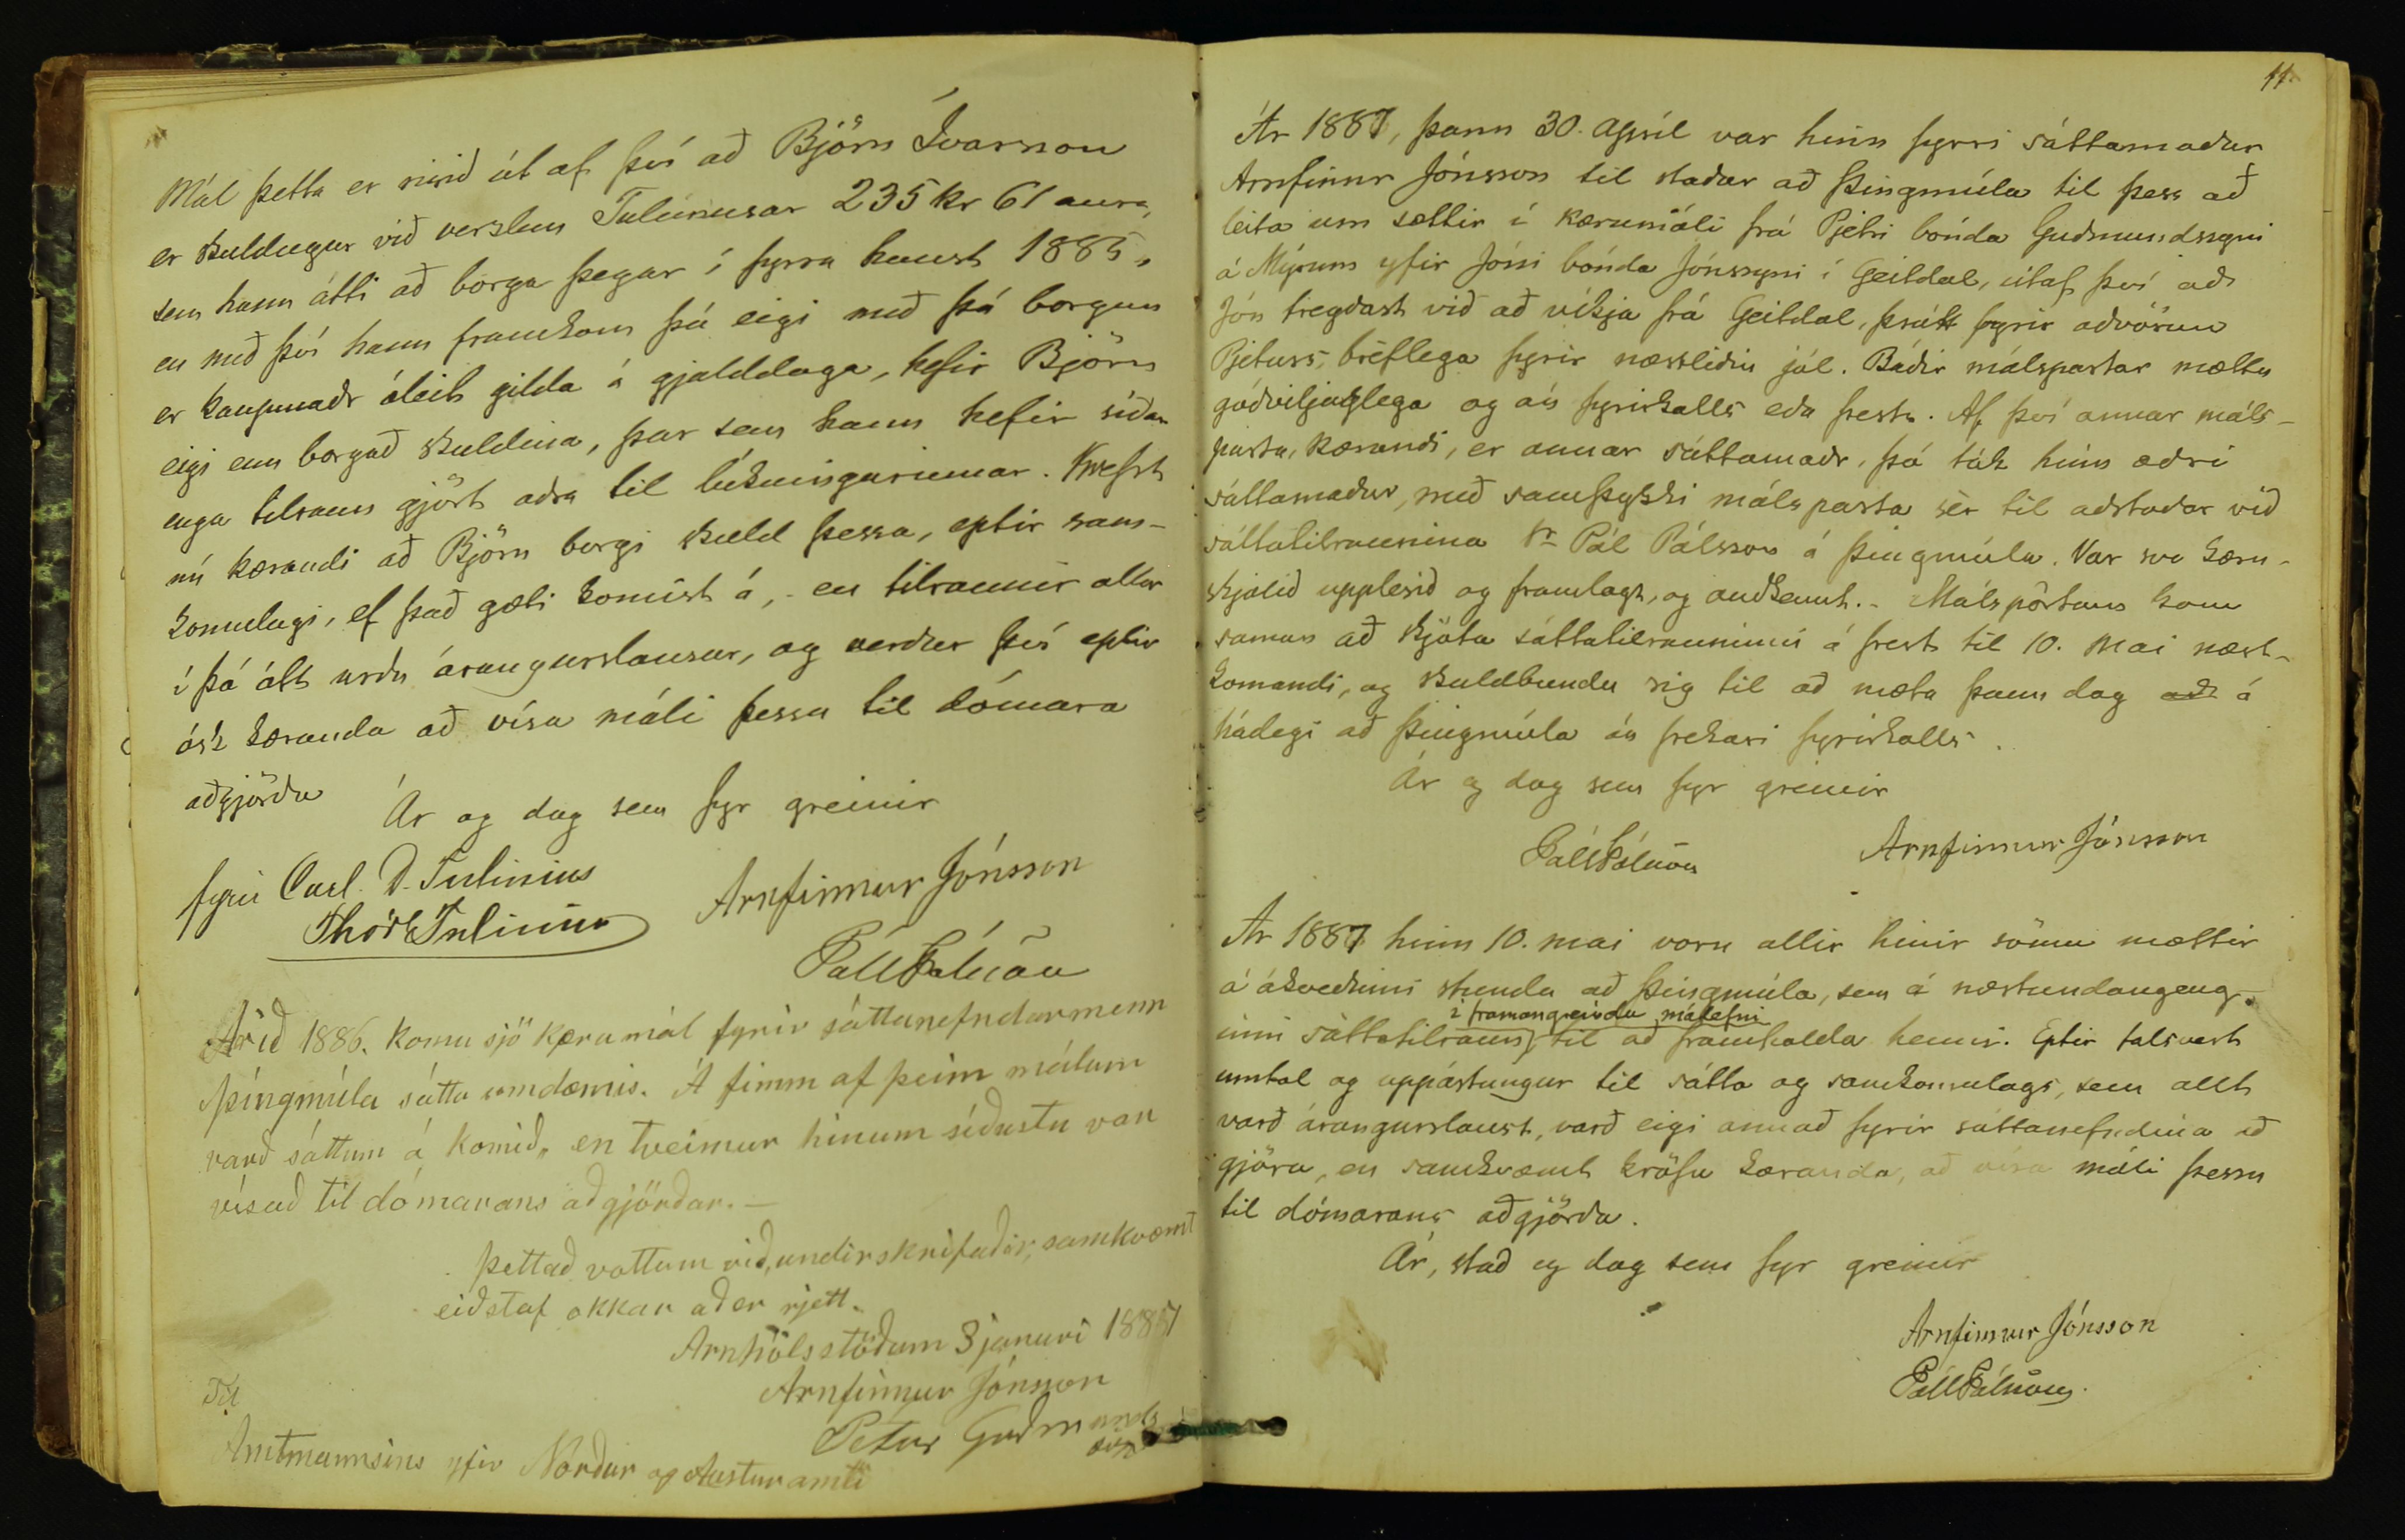 Mál þetta er risið út af því að Björn Ívarsson
er skuldugur við verzlun Tuliníusar 235 kr 61 aura,
sem hann átti að borga þegar í fyrra haust 1885,
en með því hann framkom þá eigi með þá borgun
er kaupmaðr áleit gilda á gjalddaga, hefir Björn
eigi enn borgað skuldina, þar sem hann hefir síðan
enga tilraun gjört aðra til lúkningarinnar. Krefst
nú kærandi að Björn borgi skuld þessa, eptir sam-
komulagi, ef það gæti komist á, - en tilraunir allar
í þá átt urðu árangurslausar, og verður því eptir
ósk kæranda að vísa máli þessu til dómara
aðgjörða
Ár og dag sem fyr greinir
fyrir Carl D. Tulinius
Thor E Tulinius
Arnfinnur Jónsson
Páll Pálsson
Árið 1886. komu sjö kæru mál fyrir sáttanefndarmenn
Þíngmúla sátta umdæmis. Á fimm af þeim málum
varð sáttum á komið, en tveimur hinum síðustu var
vísað til dómarans aðgjörðar. —
Þettað vottum við, undirskrifaðir, samkvæmt
eiðstaf okkar að er rjett.
Arnhólsstöðum 3 januri 1887
Arnfinnur Jónsson
Petur Guðmunds
son
Til
Amtmannsins yfir Norður og Austuramti
11.
Ár 1887, þann 30. apríl var hinn fyrri sáttamaður
Arnfinnur Jónsson til staðar að Þingmúla til þess að
leita um sættir í kærumáli frá Pjetri bónda Guðmundssyni
á Mýrum yfir Jóni bónda Jónssyni í Geitdal, útaf því að
Jón tregðast við að víkja frá Geitdal, þrátt fyrir aðvörun
Pjeturs, bréflega fyrir næstliðin jól. Báðir málspartar mættu
góðviljuglega og án fyrirkalls eða frests. Af því annar máls-
parta, kærandi, er annar sáttamaðr, þá tók hinn æðri
sáttamaður, með samþykki málsparta sér til aðstoðar við
sáttatilraunina Sr Pál Pálsson á Þingmúla. Var svo kæru-
skjalið upplesið og framlagt, og auðkennt. - Málspörtum kom
saman að skjóta sáttatilrauninni á frest til 10. mai næst-
komandi, og skuldbundu sig til að mæta þann dag að á
hádegi að Þingmúla án frekari fyrirkalls.
Ár og dag sem fyr greinir
Páll Pálsson
Arnfinnur Jónsson
Ár 1887 hinn 10. mai voru allir hinir sömu mættir
á ákveðinni stundu að Þingmúla, sem á næstundangeng-
í framangreindu málefni
inni sáttatilraun, til að framhalda henni. Eptir talsvert
umtal og uppástungur til sátta og samkomulags, sem allt
varð árangurslaust, varð eigi annað fyrir sáttanefndina að
gjöra, en samkvæmt kröfu kæranda, að vísa máli þessu
til dómarans aðgjörða.
Ár, stað og dag sem fyr greinir
Arnfinnur Jónsson
Páll Pálsson.